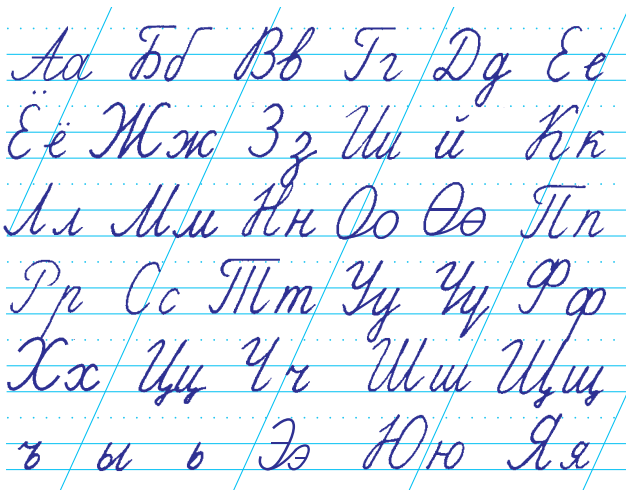 Аа Бб Вв Гг Дд Ее
Ёё Жж Зз Ии й Кк
Лл Мм Нн Оо Өө Пп
Рр Сс Тт Уу Үү Фф
Хх Цц Чч Шш Щщ
ъ ы ь Ээ Юю Яя